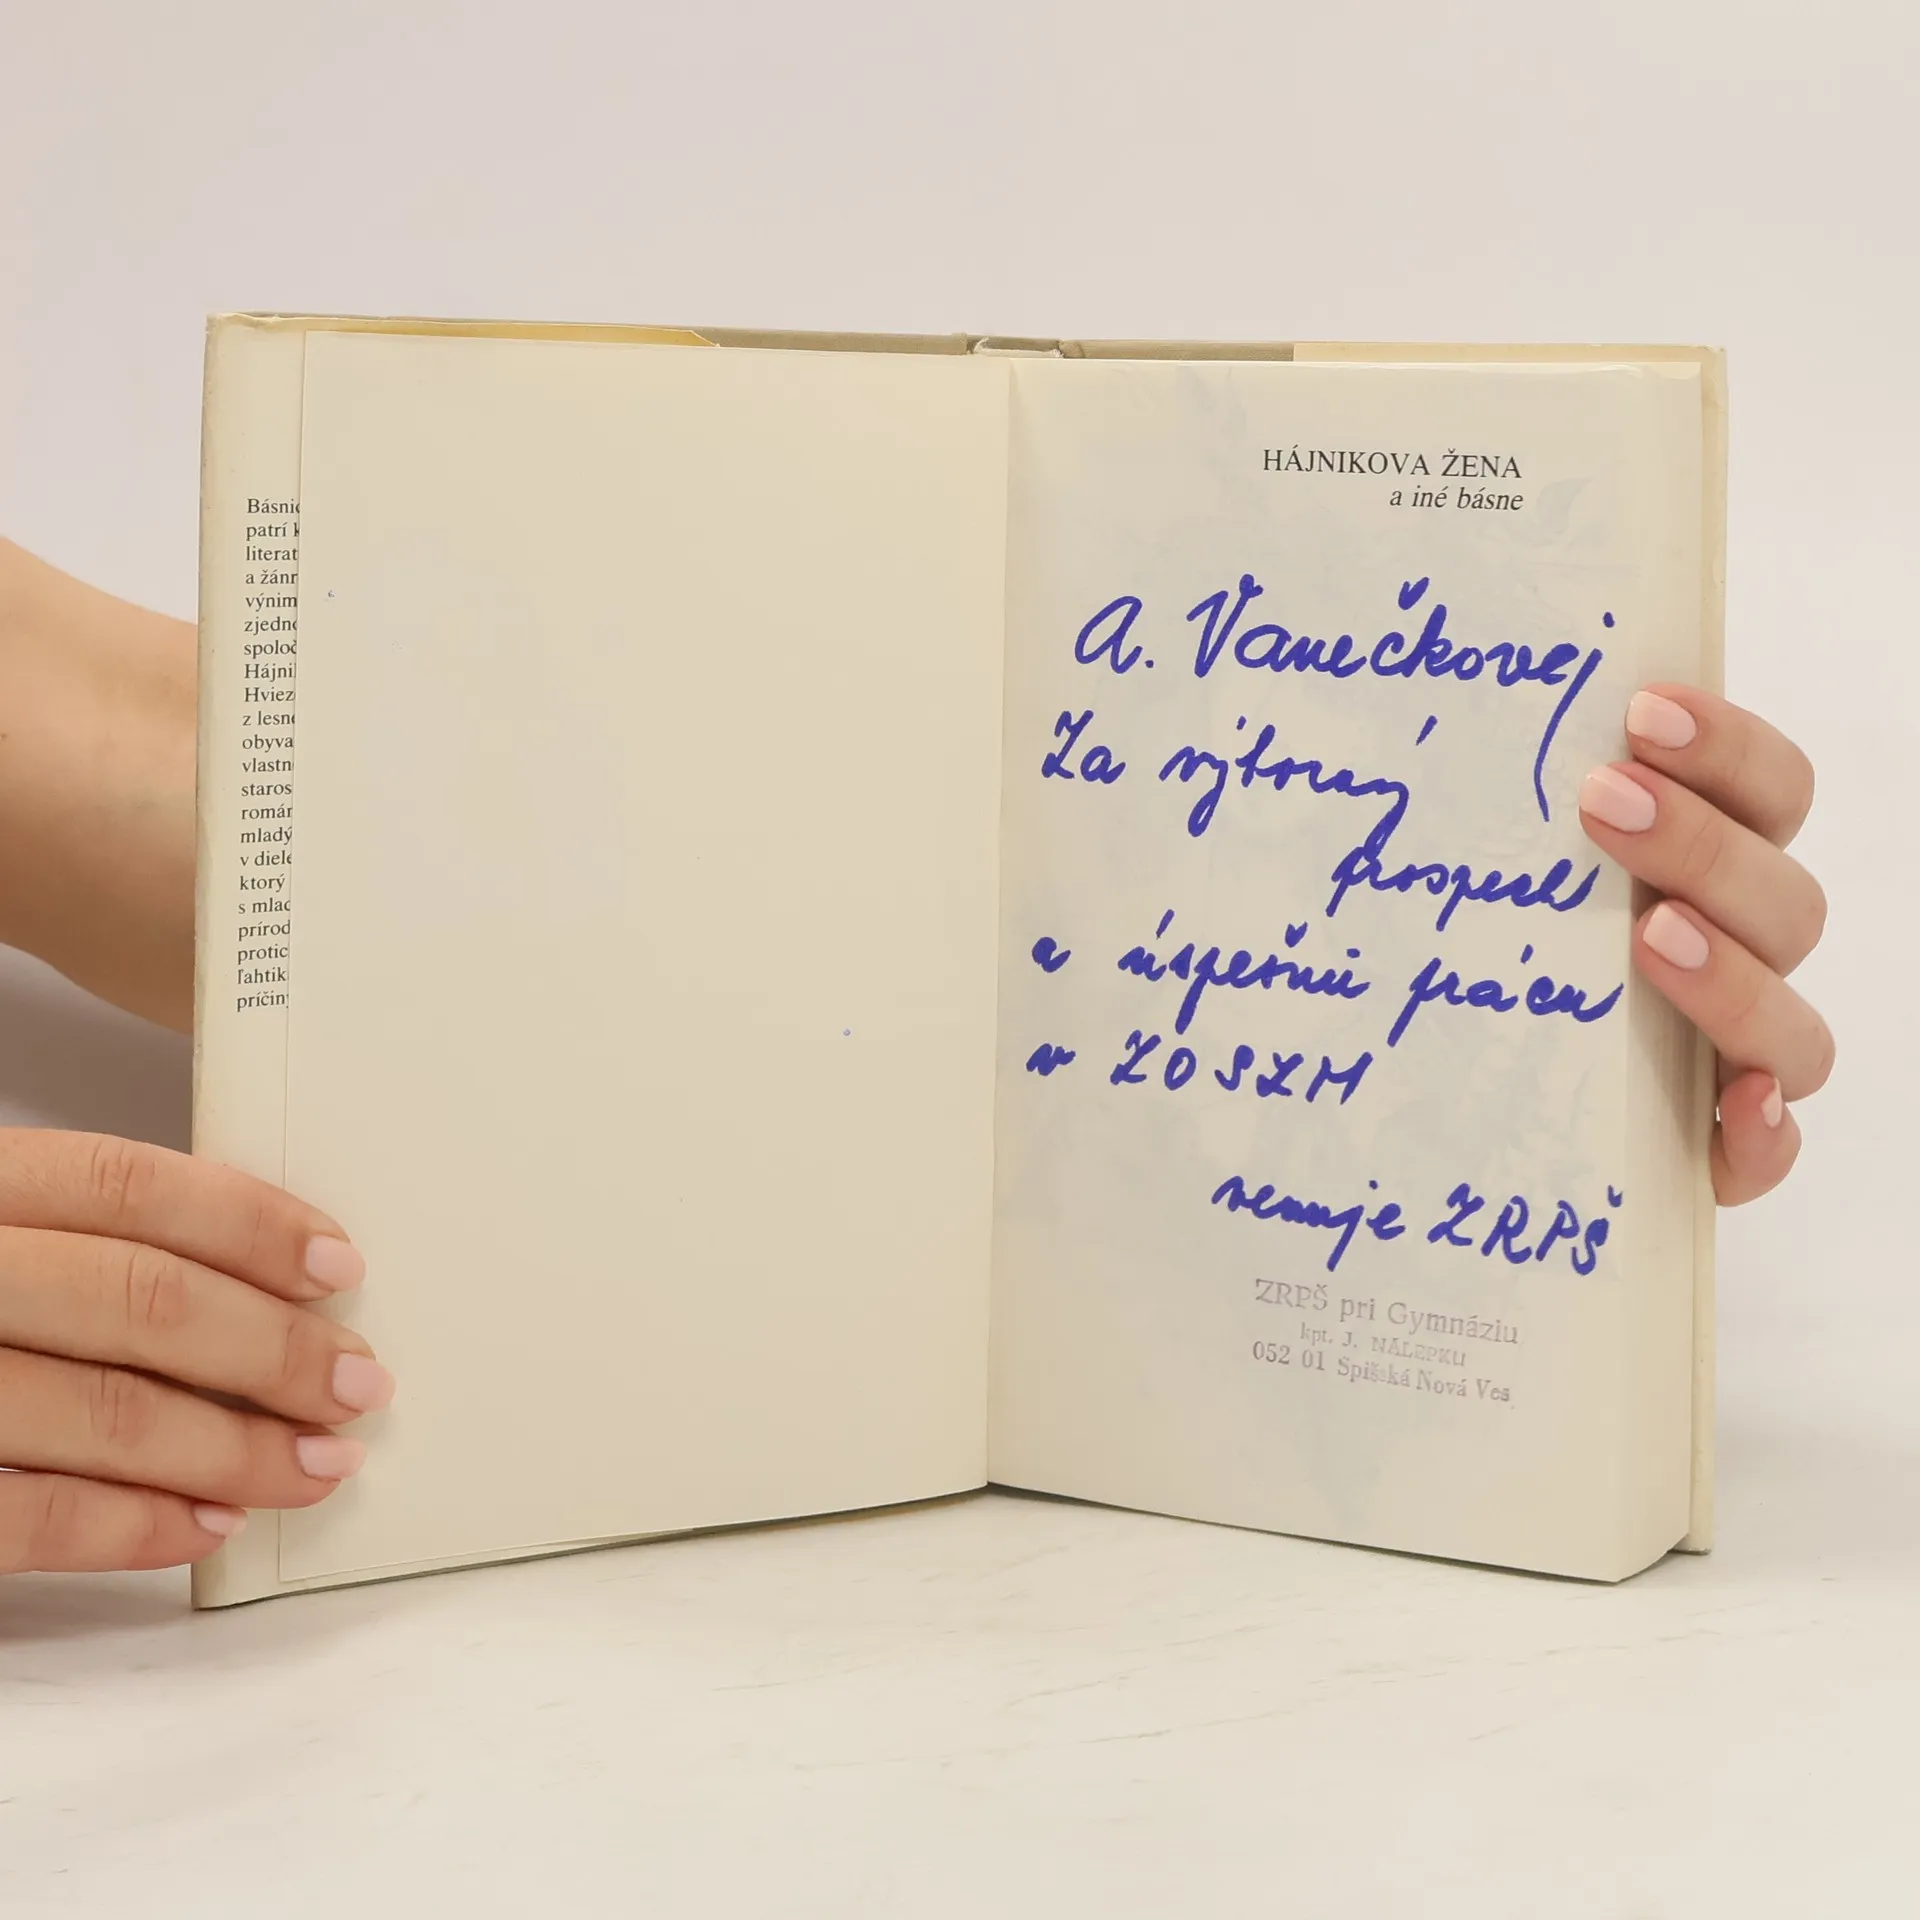 Básnic
patrí k
literat
a žánr
výnim
zjedno
spoloč
Hájni
Hviez
z lesn
obyva
vlastn
staros
román
mladý
v diele
ktorý
s mlad
prírod
protic
ľahtik
príčin
HÁJNIKOVA ŽENA
a iné básne
A. Vanečkovej
Za výborný
prospech
a úspešnú prácu
v ZO SZM
venuje ZRPŠ
ZRPŠ pri Gymnáziu
kpt. J. NÁLEPKU
052 01 Spišská Nová Ves